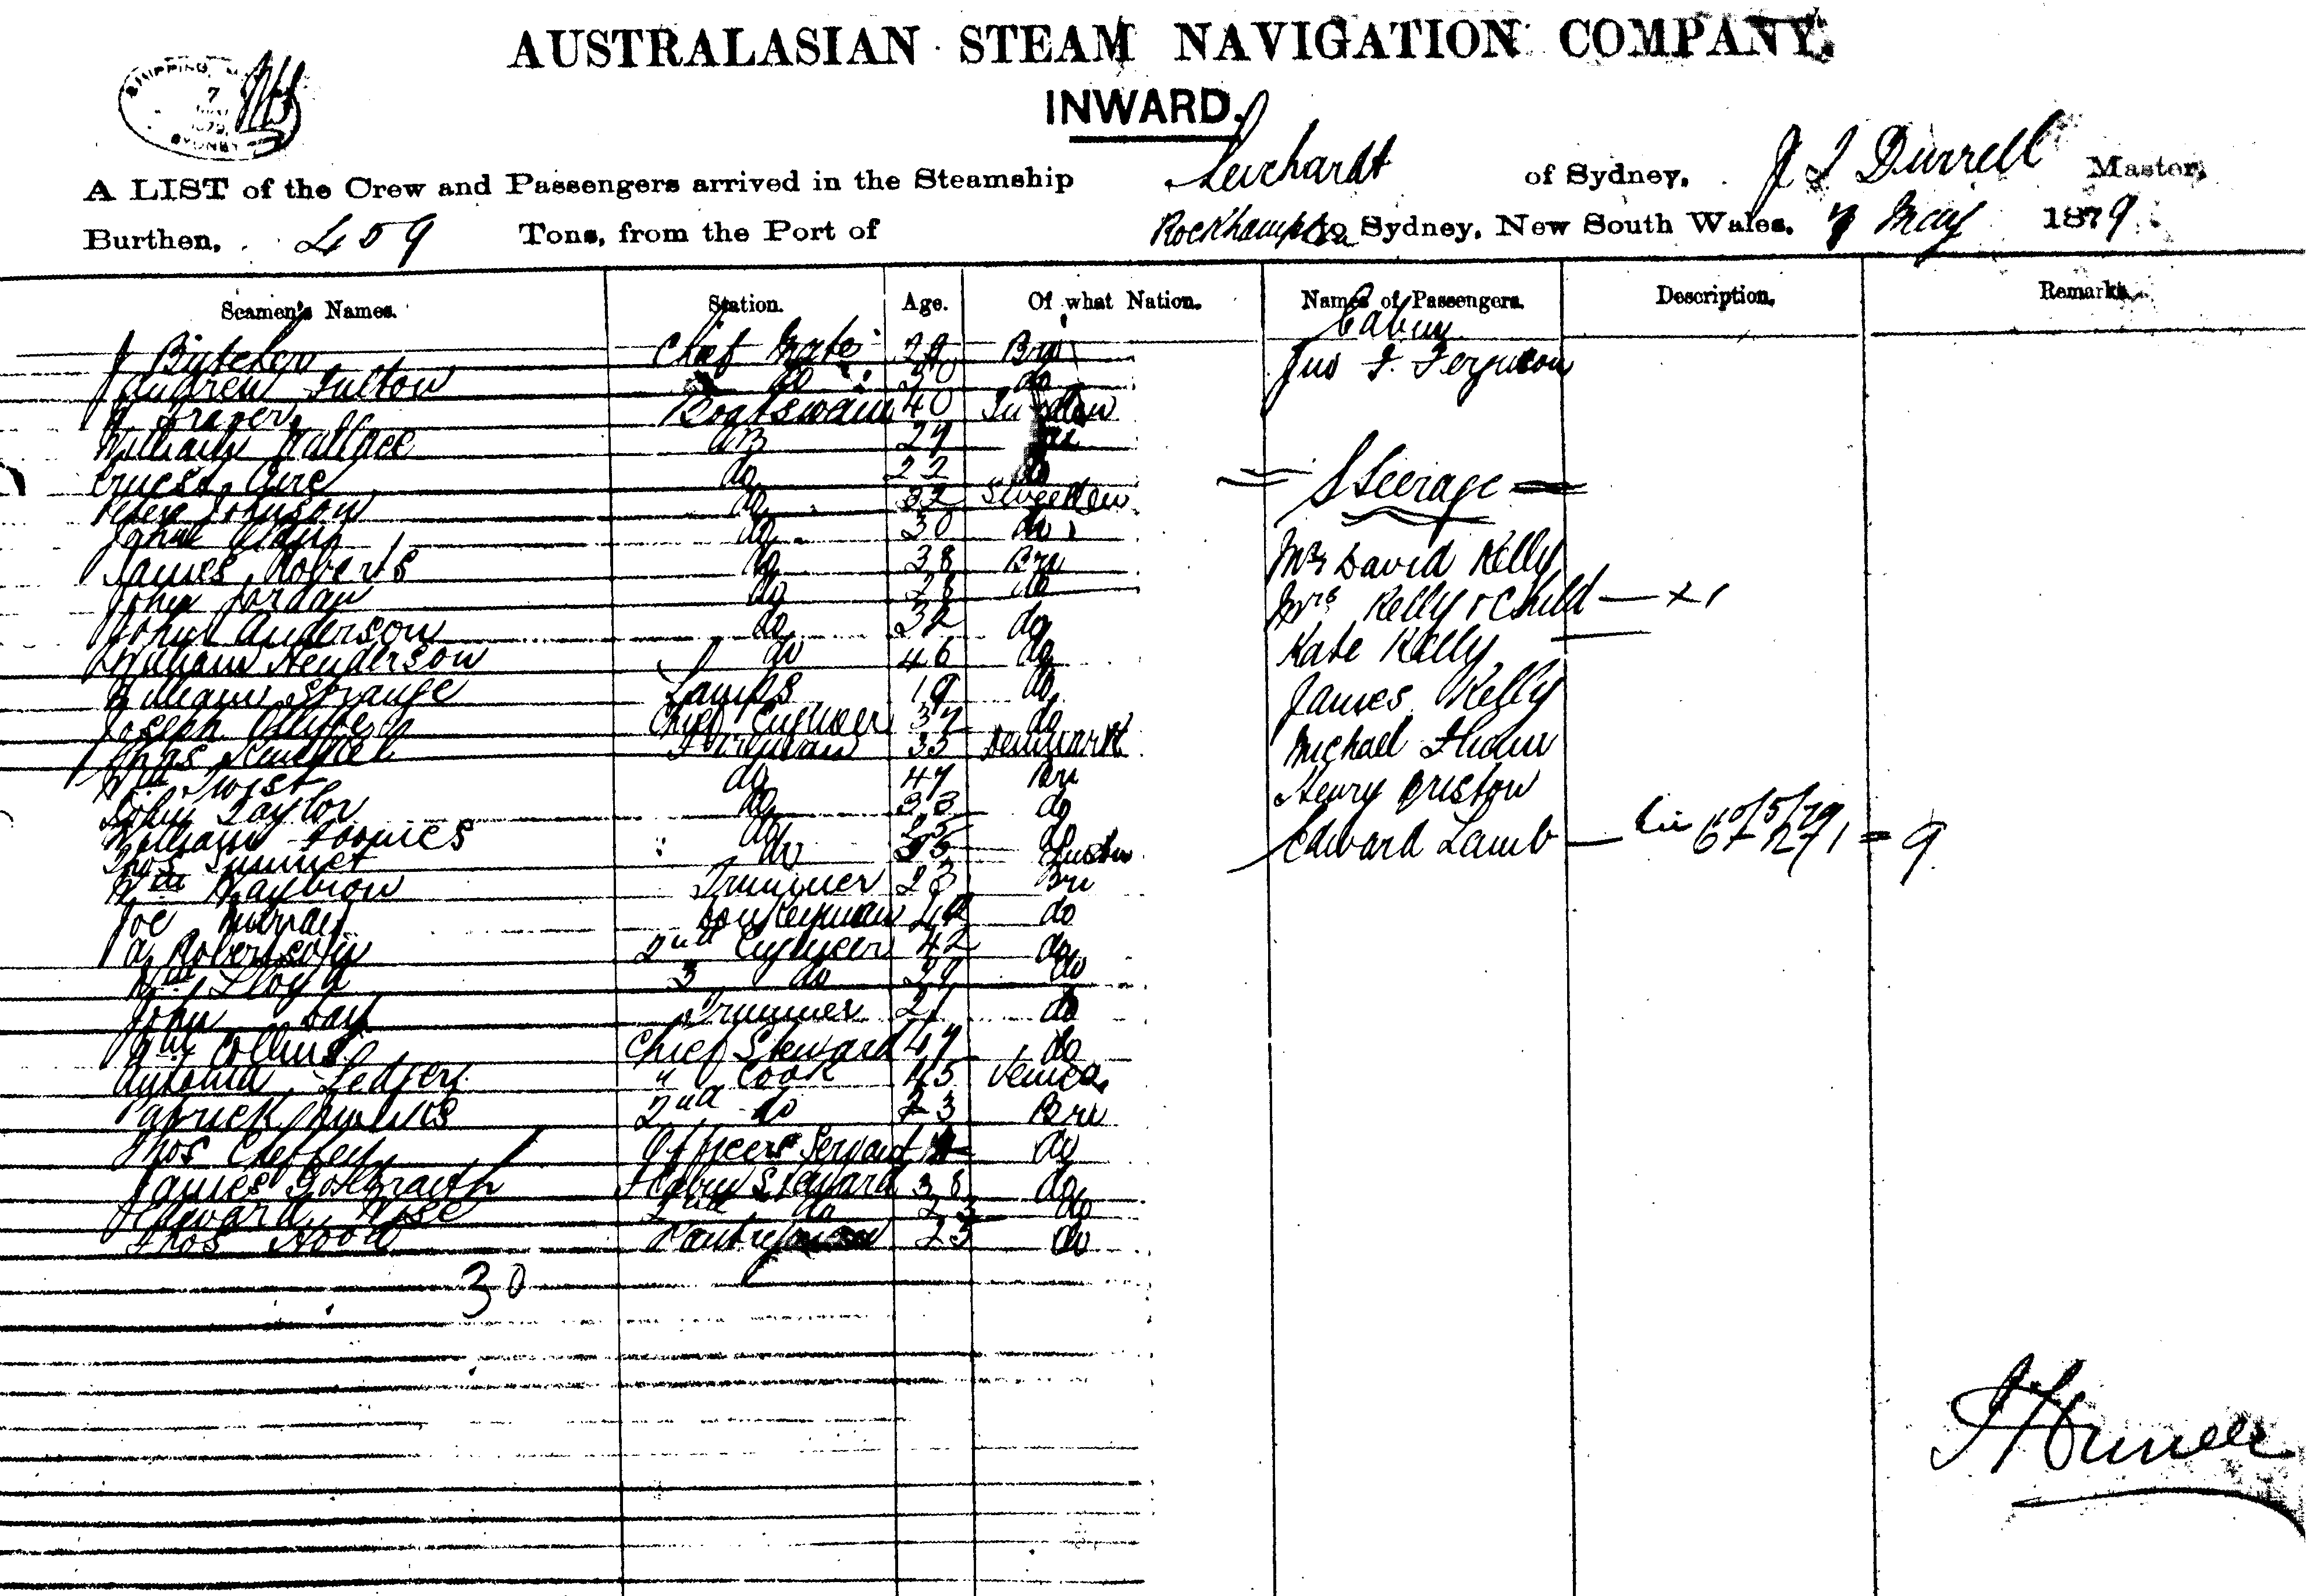 AUSTRALASIAN STEAM NAVIGATION COMPANY.
INWARD.
SHIPPING
7
SYDNEY
A LIST of the Crew and Passengers arrived in the Steamship Leichardt of Sydney, J Durrell Master,
Burthen, 459 Tons, from the Port of Rockhampton to Sydney, New South Wales, 7 May 1879
Seamen's Names. Station. Age. Of what Nation. Names of Passengers. Description. Remarks.
Cabin
J Chief Mate 29 Bri Jno F. Ferguson
Andrew Fulton do 30 do
Fraser Boatswain 40
William Wallace AB 27
Ernest do 22 do
= Steerage =
Peter Johnson do 32 Sweden
John do 30 do
James Roberts do 38 Bri Mr David Kelly
John Jordan do 28 do Mrs Kelly & Child — x 1
John Anderson do 32 do Kate Kelly
William Henderson do 46 do
William Strange Lamps 19 do James Kelly
Joseph Chief Engineer 37 do
Chas Fireman 35 Denmark Michael
Wm Twist do 47 Bri Henry Bristow
John Taylor do 33 do
William do do Edward Lamb — 6 + 2 + 1 = 9
Thos do 35
Wm Haybrow Trimmer 23 Bri
Joe Murray Donkeyman do
A Robertson 2nd Engineer 42 do
Wm Lloyd 3 do 29 do
John Day Trimmer 21 do
Wm Collins Chief Steward 47 do
Antonia Ledger " Cook 45 Venice
Patrick 2nd do 23 Bri
Thos Officers Servant do
James Galbraith F Cabin Steward 38 do
Edward Wise 2nd do 23 do
Thos Hood Pantryman 23 do
30